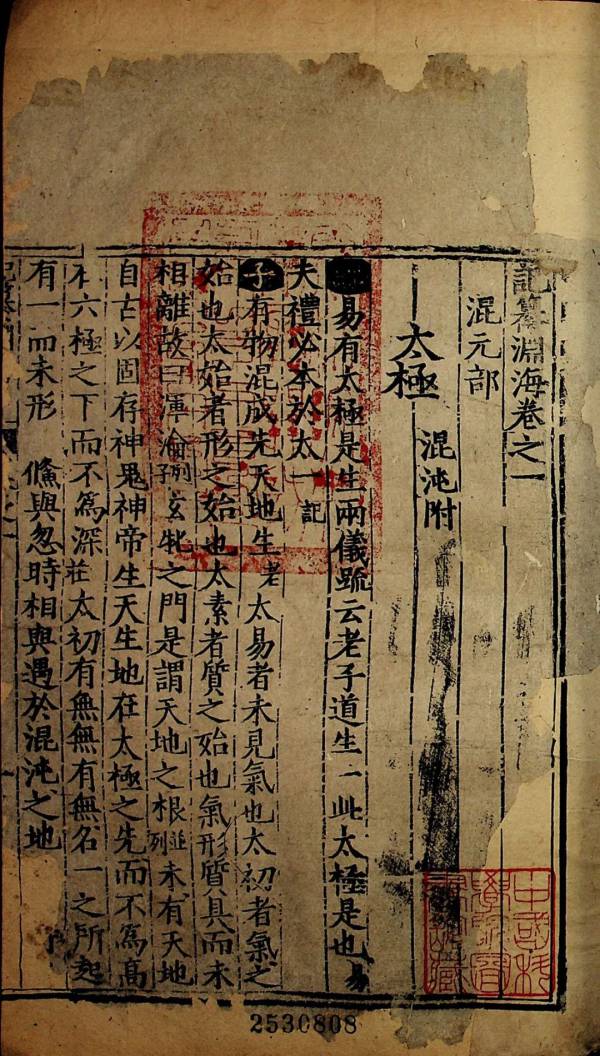 記纂淵海卷之一
混元部
太極 混沌附
易有太極是生兩儀䟽云老子道生一此太極是也易
夫禮必本於太一記
子有物混成先天地生老太易者未見氣也太初者氣之
始也太始者形之始也太素者質之始也氣形質具而未
相離故曰渾淪列子玄牝之門是謂天地之根並列未有天地
自古以固存神鬼神帝生天生地在太極之先而不爲高
在六極之下而不爲深莊太初有無無有無名一之所起
有一而未形 儵與忽時相與遇於混沌之地
2530808